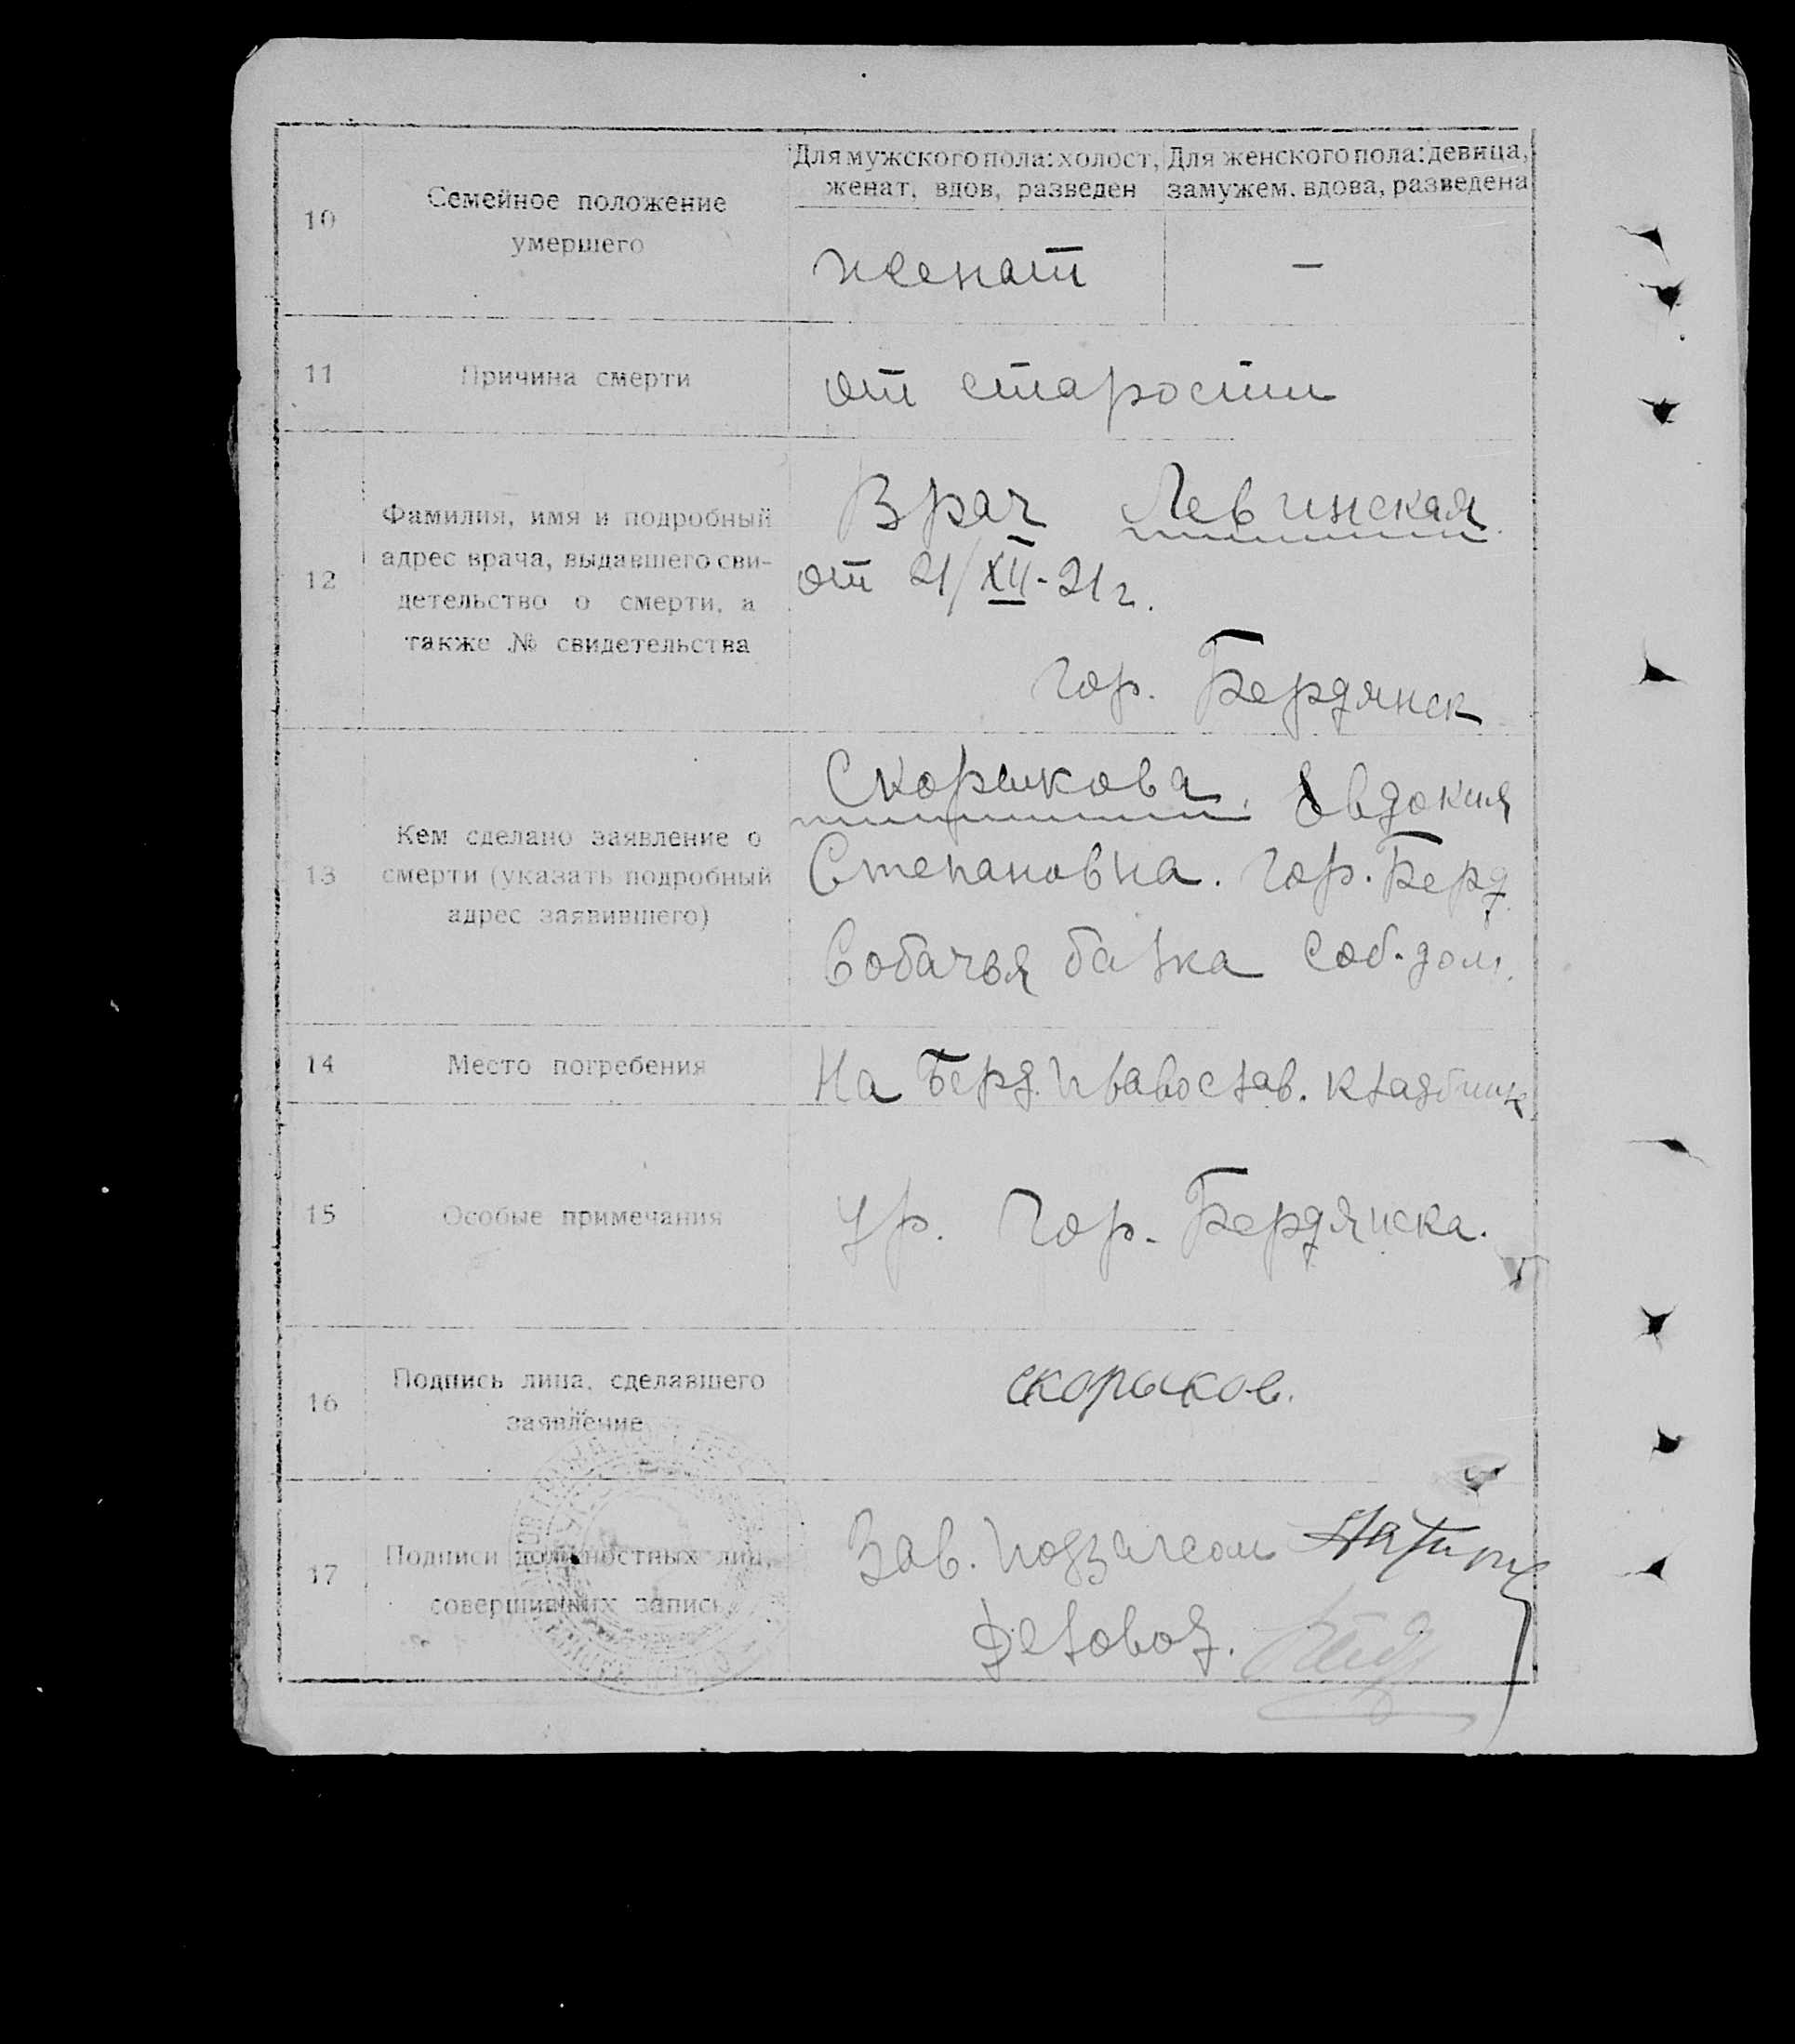 Для мужского пола: холост, женат, вдов, разведен
Для женского пола: девица, замужем, вдова, разведена
10
Семейное положение
умершего
женат
–
11
Причина смерти
от старости
12
Фамилия, имя и подробный
адрес врача, выдавшего сви-
детельство о смерти, а
также № свидетельства
Врач Левинская
от 21/XII-21 г.
гор. Бердянск
13
Кем сделано заявление о
смерти (указать подробный
адрес заявившего)
Скорикова, Евдокия
Степановна. гор. Берд.
Собачья балка соб. дом.
14
Место погребения
На Берд. Православ. кладбище
15
Особые примечания
Ур. гор. Бердянска.
16
Подпись лица, сделавшего
заявление
скорыков.
17
Подписи должностных лиц,
совершивших запись
Зав. подзагсом
Деловод.